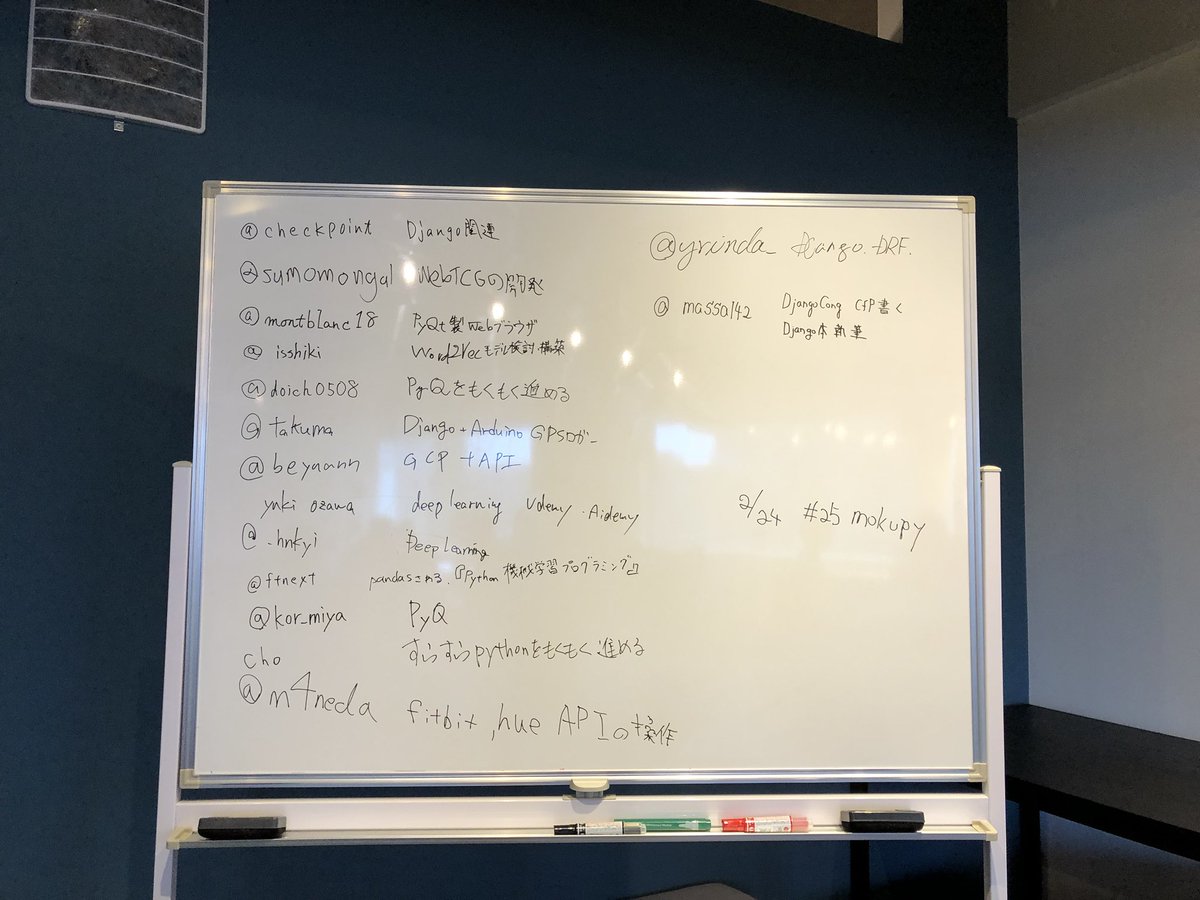 @checkpoint Django関連
@sumomongal WebTCGの開発
@montblanc18 PyQt製Webブラウザ
@isshiki Word2Vecモデル検討・構築
@doich0508 PyQをもくもく進める
@takuma Django + Arduino GPSロガー
@beyaann GCP + API
yuki ozawa deep learning Udemy ・Aidemy
@.hnkyi Deep Learning
@ftnext pandasさわる、『Python機械学習プログラミング』
@kor_miya PyQ
cho すらすらpythonをもくもく進める
@m4neda fitbit, hue APIの操作
@yrinda Django. DRF.
@massa142 DjangoCong CfP書く
Django本 執筆
2/24 #25 mokupy